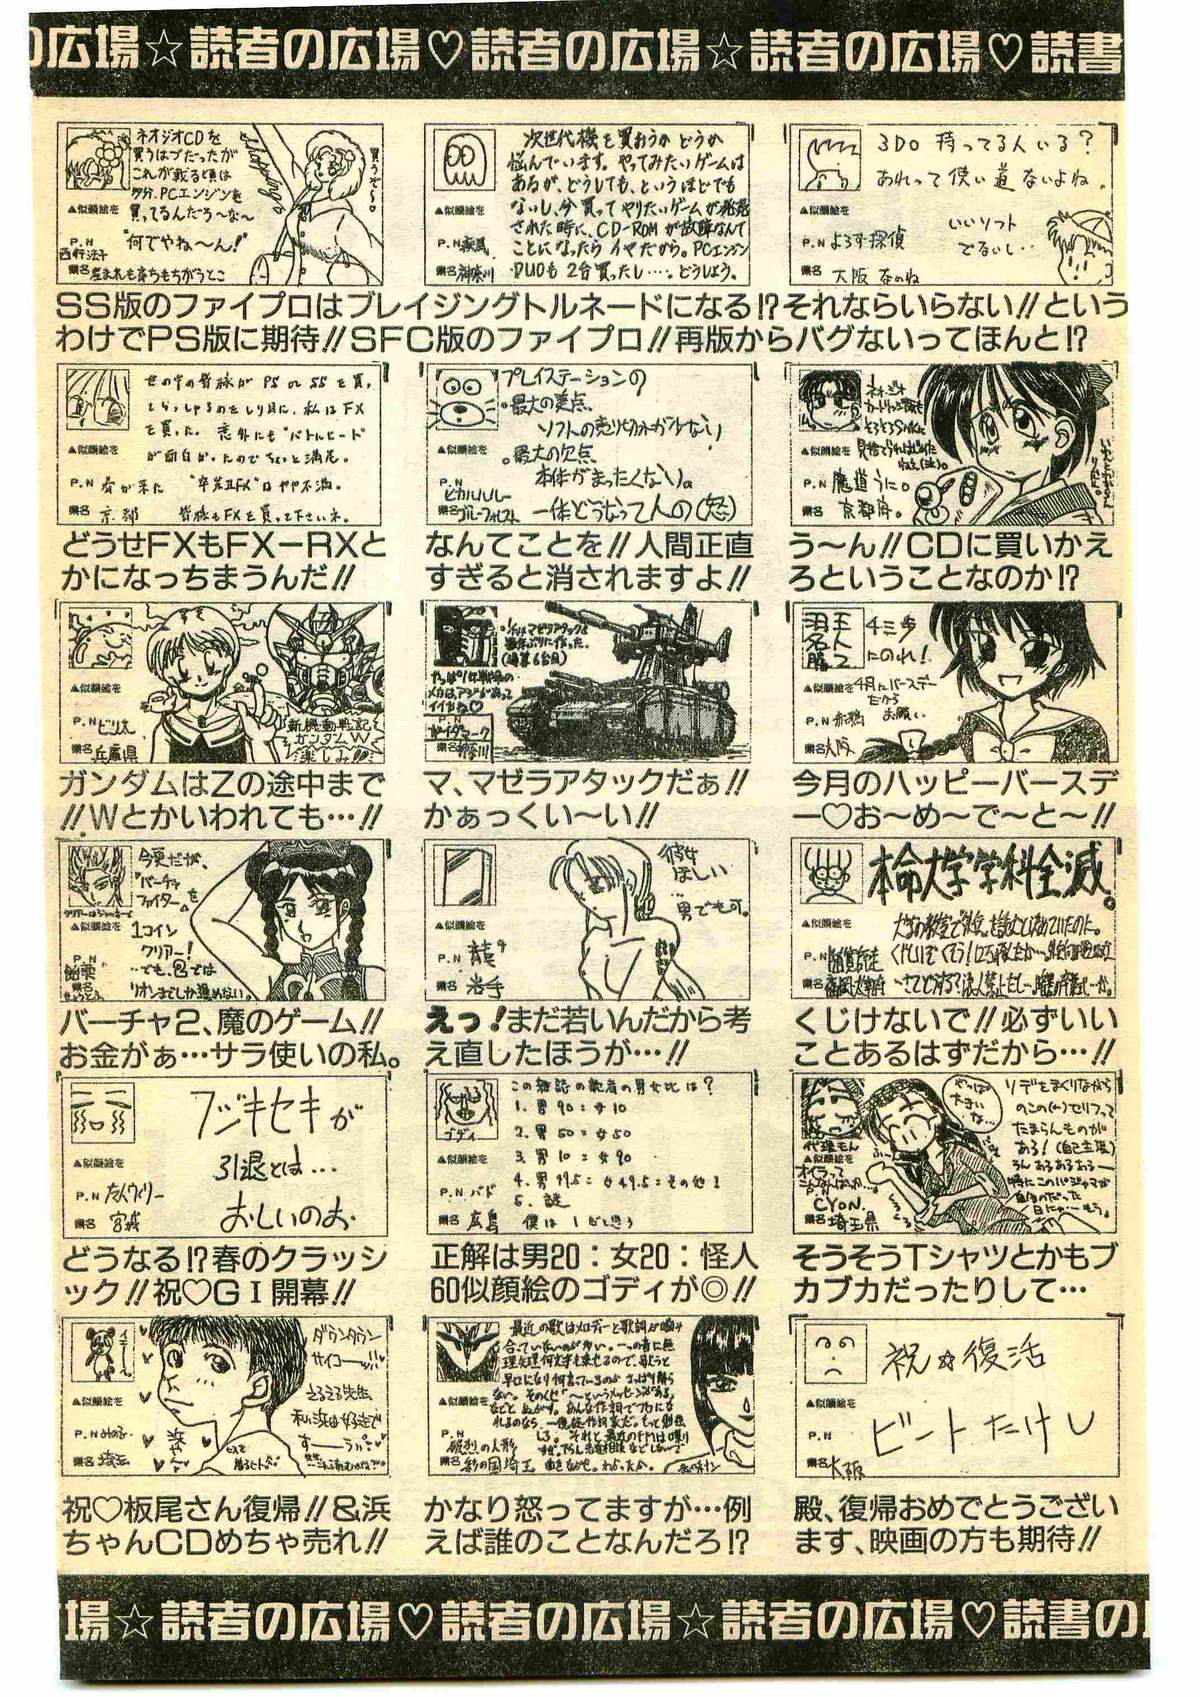 の広場☆読者の広場♡読者の広場☆読者の広場♡読書
ネオジオCDを
買うはずだったが
これが載る頃は
多分、PCエンジンを
買ってるんだろ〜な〜
"何でやね〜ん!"
▲似顔絵を
P.N
西行法子
県名 産まれも育ちもちがうとこ
shopping
買うぞ〜
次世代機を買おうか どうか
悩んでいます。やってみたいゲームは
あるが、どうしても、というほどでも
ないし、今買ってやりたいゲームが発売
された時に、CD-ROMが故障なんて
ことになったらイヤだから。PCエンジン
DUOも2台買ったし…。どうしよう。
▲似顔絵を
P.N 疾風
県名 神奈川
3DO 持ってる人いる?
あれって使い道ないよね。
いいソフト
でないし…
▲似顔絵を
P.N よろず探偵
県名 大阪 なのね
SS版のファイプロはブレイジングトルネードになる!?それならいらない!!という
わけでPS版に期待!!SFC版のファイプロ!!再版からバグないってほんと!?
世の中の皆様が PS or SS を買っ
てらっしゃるのをしり目に、私はFX
を買った。意外にも"バトルヒート"
が面白かったのでちょっと満足。
"卒業ⅡFX"はやや不満。
皆様もFXを買って下さいネ。
▲似顔絵を
P.N 春が来た
県名 京都
プレイステーションの
。最大の美点、
ソフトの売り切れが少ない
。最大の欠点
本体がまったくない。
一体どうなってんの(怒)
▲似顔絵を
P.N ピカルルルー
県名 ブルーフォレスト
▲似顔絵を
P.N 魔道うに。
県名 京都府。
どうせFXもFX−RXと
かになっちまうんだ!!
なんてことを!!人間正直
すぎると消されますよ!!
う〜ん!!CDに買いかえ
ろということなのか!?
▲似顔絵を
P.N ビリ太
県名 兵庫県
新機動戦記
ガンダムW
楽しみ!!
マゼラアタックを
数年ぶりに作った。
(通算6台目)
やっぱ1年戦争の
メカはアジがあって
イイやね♡
神奈川
4コ歩
にのれ!
4月にバースデー
だから
お願い
▲似顔絵を
P.N 赤鴉
県名 大阪
ガンダムはZの途中まで
!!Wとかいわれても…!!
マ、マゼラアタックだぁ!!
かぁっくい〜い!!
今月のハッピーバースデ
ー♡お〜め〜で〜と〜!!
今更だが、
『バーチャ
ファイター』を
1コイン
クリアー!
でも、②では
リオンまでしか進めない。
▲似顔絵を
P.N 飴雫
県名
彼女
ほしい
男でも可。
▲似顔絵を
P.N 龍
県名 岩手
本命大学学科全滅。
▲似顔絵を
P.N
県名
バーチャ2、魔のゲーム!!
お金がぁ…サラ使いの私。
えっ!まだ若いんだから考
え直したほうが…!!
くじけないで!!必ずいい
ことあるはずだから…!!
フジキセキが
引退とは…
おしいのぉ
▲似顔絵を
P.N たんクイリー
県名 宮城
この雑誌の読者の男女比は?
1. 男90:女10
2. 男50:女50
3. 男10:女90
4. 男49.5:女49.5:その他1
5. 謎
僕は1だと思う
ゴディ
▲似顔絵を
P.N バド
県名 広島
やっぱ
大きいな…
ソデをまくりながら
のこの(←)セリフって
たまらんものが
ある!(自己主張)
うん あるあるある
特にこのパジャマが
自分のだった
日にゃーもう。
代理もん
▲似顔絵を
CYON.
県名 埼玉県
どうなる!?春のクラッシ
ック!!祝♡GⅠ開幕!!
正解は男20:女20:怪人
60似顔絵のゴディが◎!!
そうそうTシャツとかもブ
カブカだったりして…
ダウンタウン
サイコー!!
まるまる先生
私も浜は好きで
すーうふ
▲似顔絵を
P.N みのる
県名 埼玉
浜ちゃん♡
最近の歌はメロディーと歌詞が噛み
合っていない人が多い。一つの音に無
理矢理何文字も乗せるので、歌うと
早口になり何言っているのかさっぱり解ら
ない。そのくせ「〜というメッセージがある」
などとぬかす。あんな作詞でプロにな
れるのなら、一億総作詞家だ。もっと勉強
しろ。それと最近のFMは喋り
すぎ。下らん恋愛相談などしないで
曲をながせ。わかったか。
▲似顔絵を
P.N 破烈の人形
県名 彩の国埼玉
祝☆復活
ビートたけし
▲似顔絵を
P.N
県名 大阪
祝♡板尾さん復帰!!&浜
ちゃんCDめちゃ売れ!!
かなり怒ってますが…例
えば誰のことなんだろ!?
殿、復帰おめでとうござい
ます、映画の方も期待!!
広場☆読者の広場♡読者の広場☆読者の広場♡読書の広